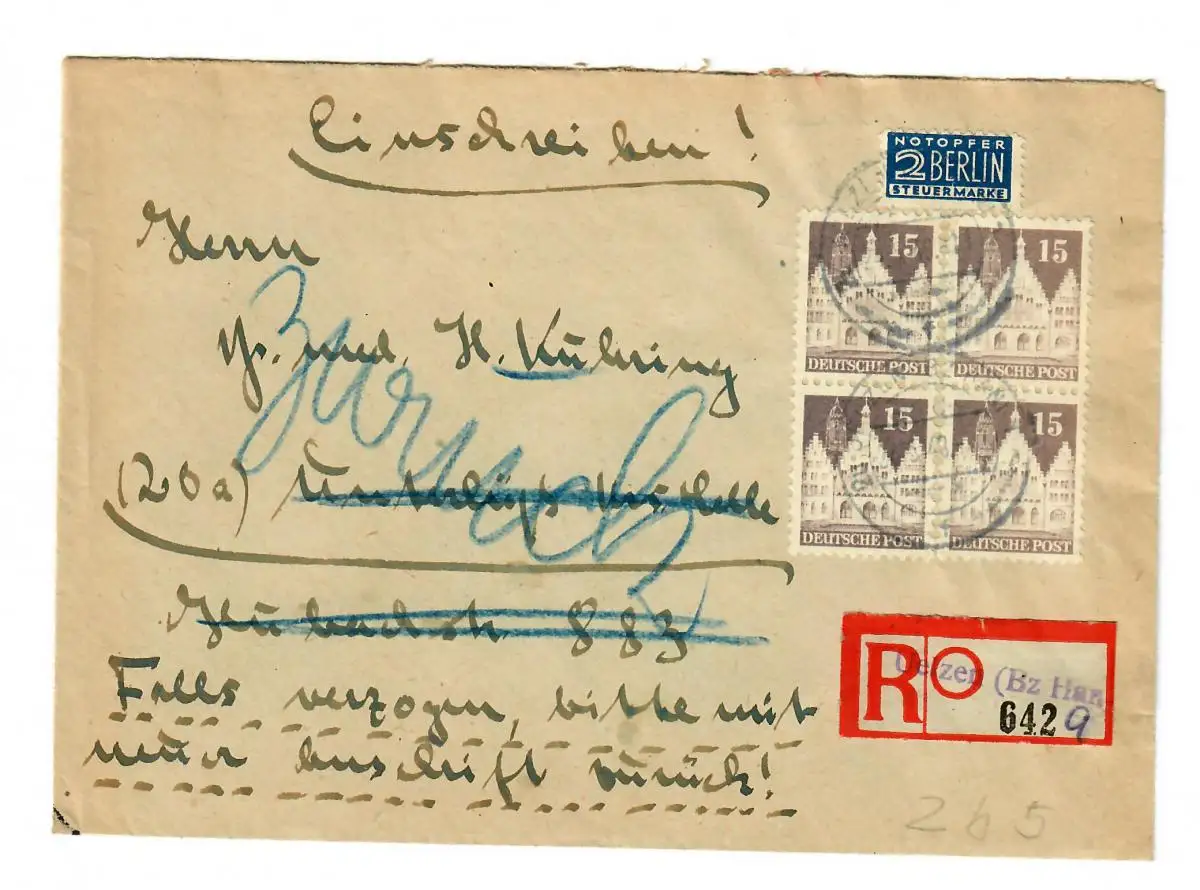 Einschreiben!
NOTOPFER
2 BERLIN
STEUERMARKE
Herrn
Dr. med. H. Kühring
Zurück
(20a)
883
Falls verzogen, bitte mit
neuer Anschrift zurück!
15
15
DEUTSCHE POST
DEUTSCHE POST
15
15
DEUTSCHE POST
DEUTSCHE POST
R
Uelzen (Bz Han
642 9
265